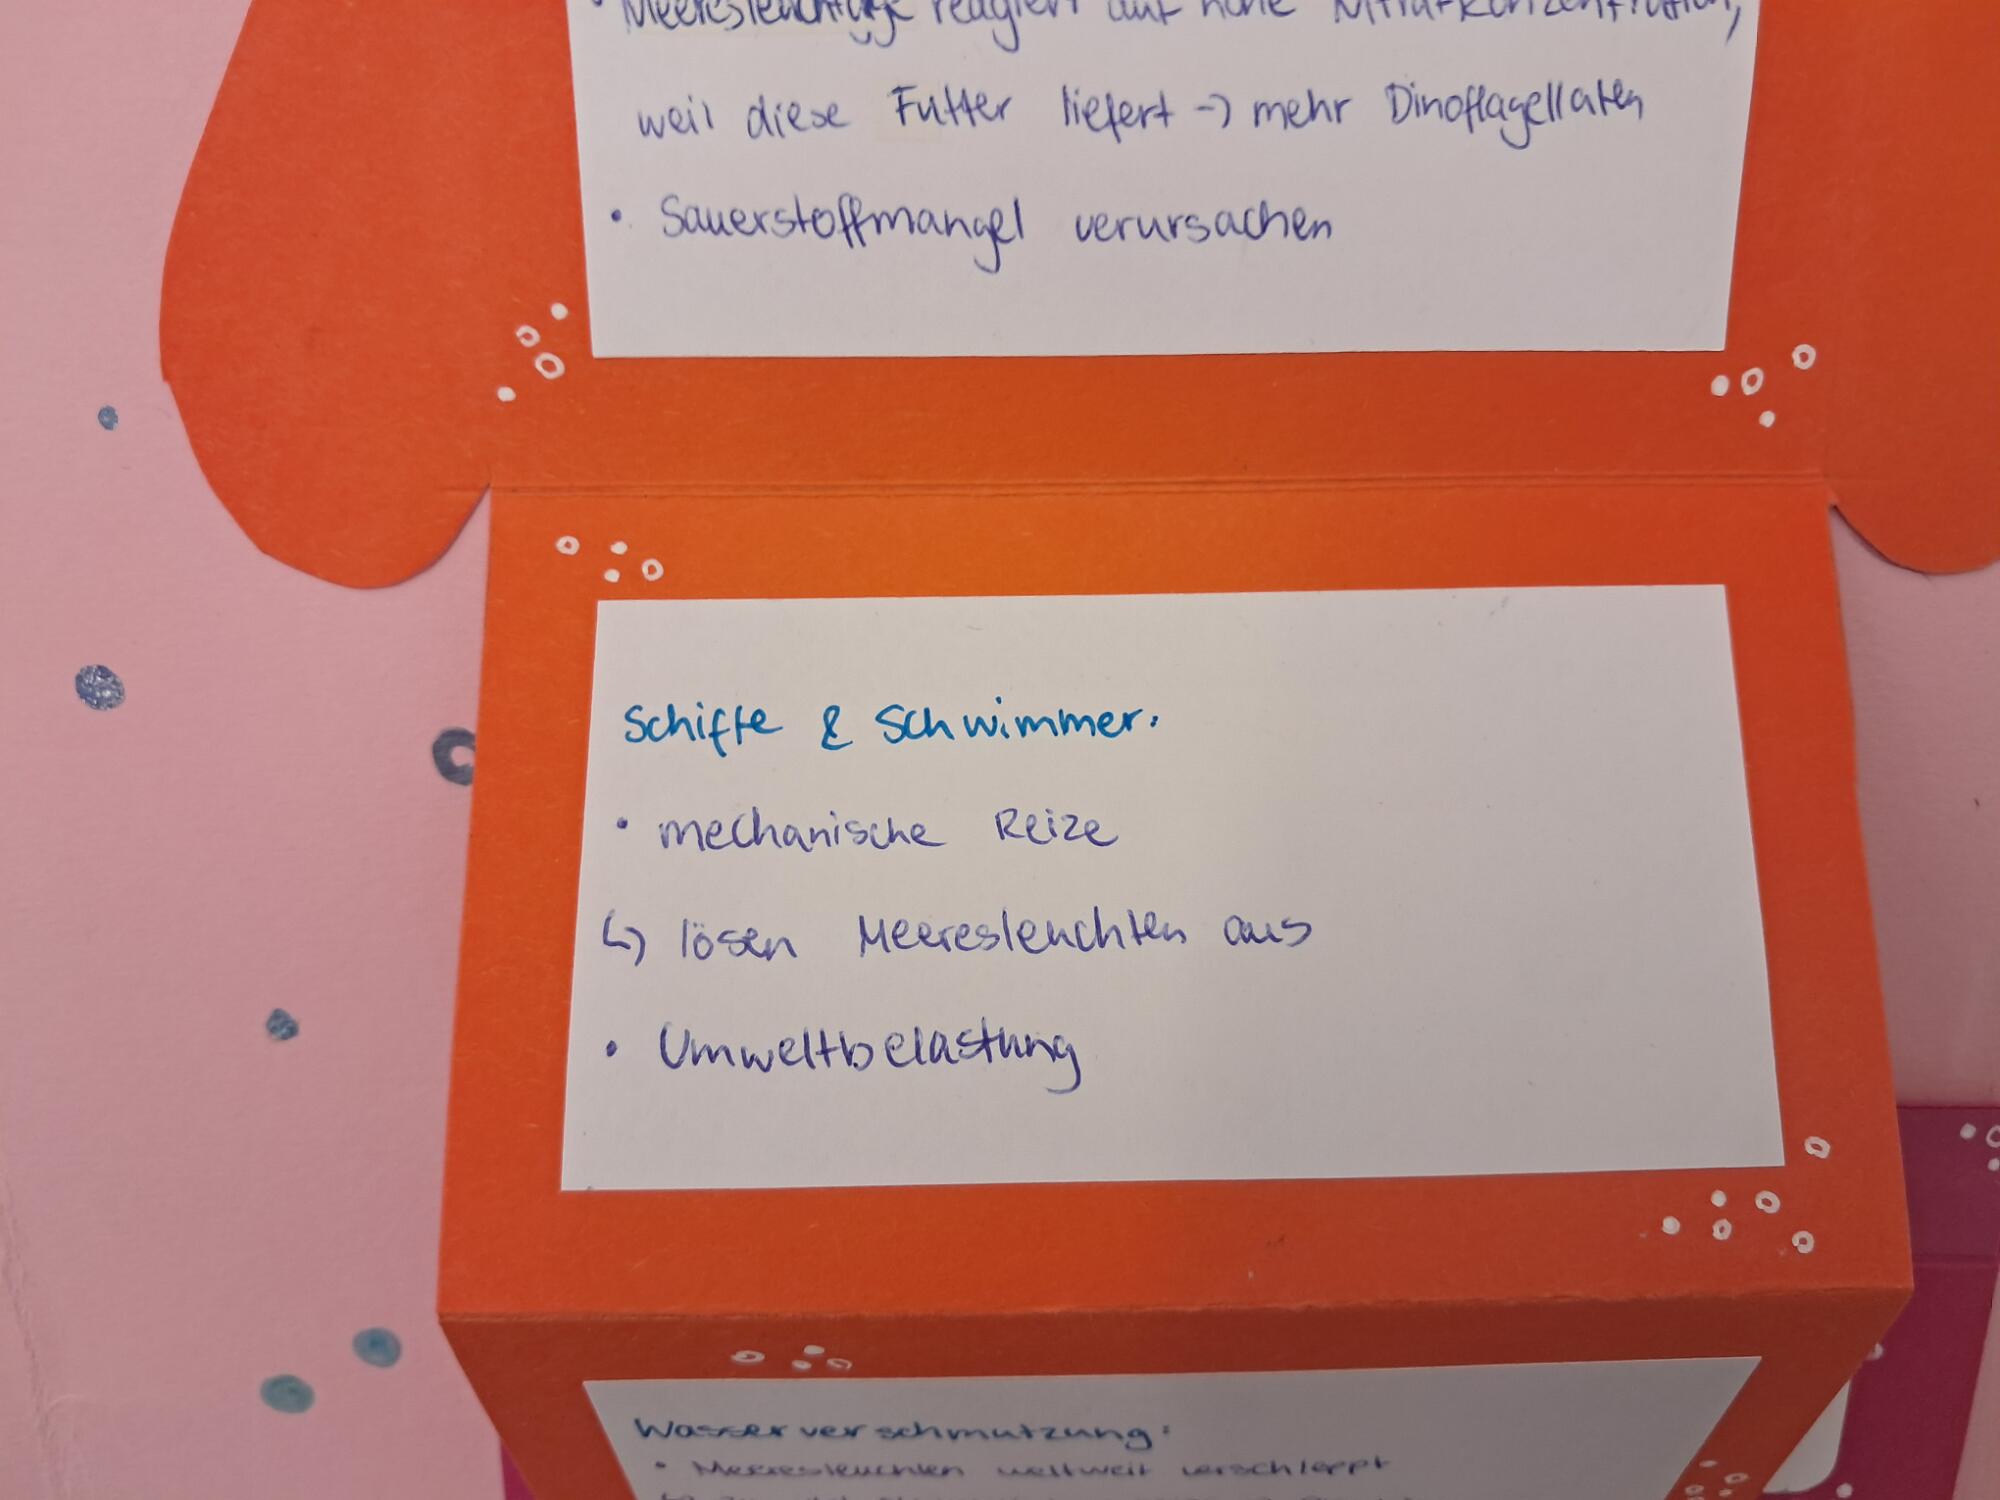 Meeresleuchtalge reagiert auf hohe Nitratkonzentration,
weil diese Futter liefert -> mehr Dinoflagellaten
• Sauerstoffmangel verursachen
Schiffe & Schwimmer:
• mechanische Reize
↳ lösen Meeresleuchten aus
• Umweltbelastung
Wasserverschmutzung:
• Meeresleuchten weltweit verschleppt